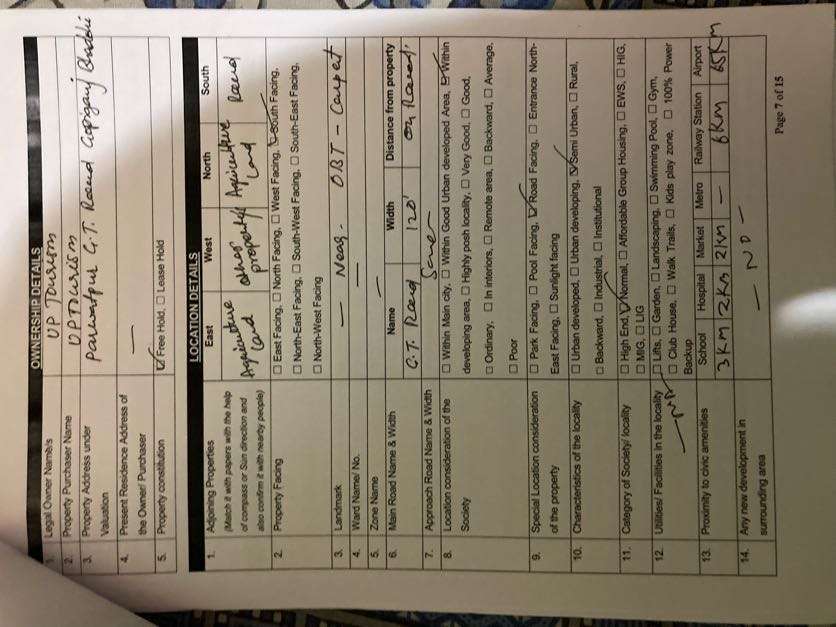 OWNERSHIP DETAILS
1. Legal Owner Name/s UP Tourism
2. Property Purchaser Name UP Tourism
3. Property Address under Valuation G.T. Road Gopiganj Bhadohi
4. Present Residence Address of the Owner/ Purchaser —
5. Property constitution ☑ Free Hold, ☐ Lease Hold
LOCATION DETAILS
1. Adjoining Properties East West North South
(Match it with papers with the help of compass or Sun direction and also confirm it with nearby people) Agriculture land other property Agriculture land Road
2. Property Facing ☐ East Facing, ☐ North Facing, ☐ West Facing, ☑ South Facing,
☐ North-East Facing, ☐ South-West Facing, ☐ South-East Facing,
☐ North-West Facing
3. Landmark — Near - OBT - Carpet
4. Ward Name/ No. —
5. Zone Name —
6. Main Road Name & Width Name Width Distance from property
G.T. Road 120' on Road.
7. Approach Road Name & Width Same
8. Location consideration of the Society ☐ Within Main city, ☐ Within Good Urban developed Area, ☑ Within
developing area, ☐ Highly posh locality, ☐ Very Good, ☐ Good,
☐ Ordinary, ☐ In interiors, ☐ Remote area, ☐ Backward, ☐ Average,
☐ Poor
9. Special Location consideration of the property ☐ Park Facing, ☐ Pool Facing, ☑ Road Facing, ☐ Entrance North-
East Facing, ☐ Sunlight facing
10. Characteristics of the locality ☐ Urban developed, ☐ Urban developing, ☑ Semi Urban, ☐ Rural,
☐ Backward, ☐ Industrial, ☐ Institutional
11. Category of Society/ locality ☐ High End, ☑ Normal, ☐ Affordable Group Housing, ☐ EWS, ☐ HIG,
☐ MIG, ☐ LIG
12. Utilities/ Facilities in the locality ☐ Lifts, ☐ Garden, ☐ Landscaping, ☐ Swimming Pool, ☐ Gym,
☐ Club House, ☐ Walk Trails, ☐ Kids play zone, ☐ 100% Power
Backup
13. Proximity to civic amenities School Hospital Market Metro Railway Station Airport
3 KM 2 KM 2 KM — 6 KM 65 KM
14. Any new development in surrounding area — NO —
Page 7 of 15